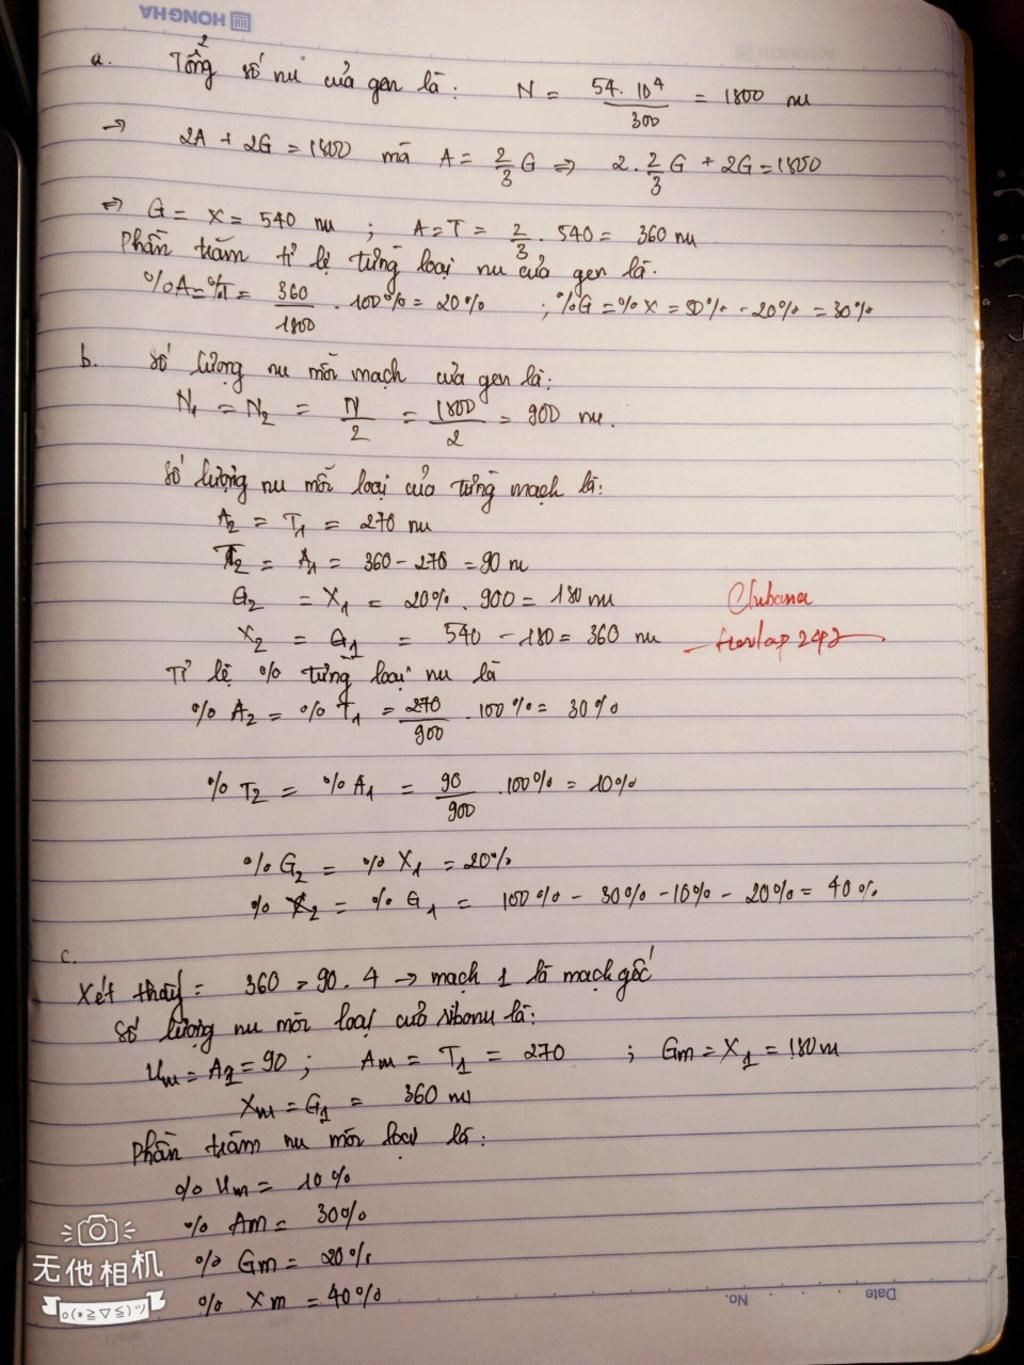 HONGHA
a. Tổng số nu của gen là: N = 54.10⁴/300 = 1800 nu
→ 2A + 2G = 1800 mà A = 2/3 G ⇒ 2.2/3 G + 2G = 1800
⇒ G = X = 540 nu ; A=T = 2/3 . 540 = 360 nu
Phần trăm tỉ lệ từng loại nu của gen là.
%A=%T = 360/1800 . 100% = 20% ; %G=%X = 50% - 20% = 30%
b. Số lượng nu mỗi mạch của gen là:
N₁ = N₂ = N/2 = 1800/2 = 900 nu.
Số lượng nu mỗi loại của từng mạch là:
A₂ = T₁ = 270 nu
T₂ = A₁ = 360 - 270 = 90 nu
G₂ = X₁ = 20% . 900 = 180 nu
X₂ = G₁ = 540 - 180 = 360 nu
Tỉ lệ % từng loại nu là
% A₂ = % T₁ = 270/900 . 100% = 30%
% T₂ = % A₁ = 90/900 . 100% = 10%
% G₂ = % X₁ = 20%
% X₂ = % G₁ = 100% - 30% - 10% - 20% = 40%
c.
Xét thấy = 360 = 90 . 4 → mạch 1 là mạch gốc
Số lượng nu mỗi loại của ribonu là:
Um = A₁ = 90 ; Am = T₁ = 270 ; Gm = X₁ = 180 nu
Xm = G₁ = 360 nu
Phần trăm nu mỗi loại là:
% Um = 10%
% Am = 30%
% Gm = 20%
% Xm = 40%
无他相机
o(*≧▽≦)ツ
No.
Date